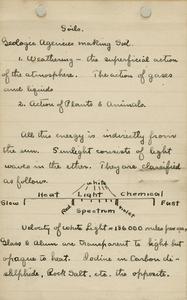 Soils.
Geologic Agencies making Soil
1. Weathering - the superficial action
of the atmosphere. The action of gases
and liquids
2. Action of Plants & Animals.
All this energy is indirectly from
the sun. Sunlight consists of light
waves in the ether. They are classified
as follows.
White
Heat Light Chemical
Slow Red Violet Fast
Spectrum
Velocity of White Light = 186000 miles per sec.
Glass & Alum are transparent to light but
opaque to heat. Iodine in Carbon di-
sulphide, Rock Salt, etc. the opposite.